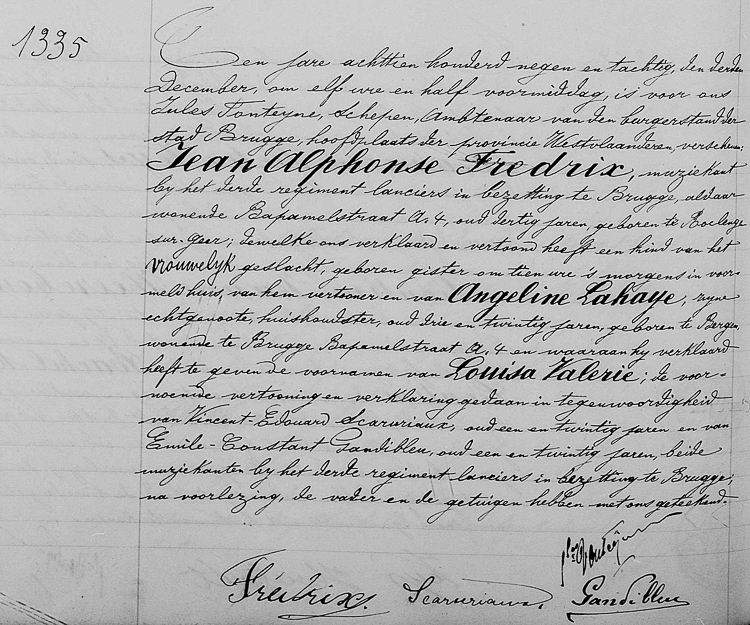 1335
Een jare achttien honderd negen en tachtig, den derden
December, om elf ure en half voormiddag, is voor ons
Jules Fonteyne, Schepen, Ambtenaar van den burgerstand der
stad Brugge, hoofdplaats der provincie Westvlaanderen, verschenen:
Jean Alphonse Fredrix, muziekant
by het derde regiment lanciers in bezetting te Brugge, aldaar
wonende Bapamelstraat A. 4, oud dertig jaren, geboren te Roclenge
sur-Geer; dewelke ons verklaard en vertoond heeft een kind van het
vrouwelyk geslacht, geboren gister om tien ure 's morgens in voor-
meld huis, van hem vertooner en van Angeline Lahaye, zyne
echtgenoote, huishoudster, oud drie en twintig jaren, geboren te Bergen,
wonende te Brugge Bapamelstraat A. 4 en waaraan hy verklaard
heeft te geven de voornamen van Louisa Valerie; de voor-
noemde vertooning en verklaring gedaan in tegenwoordigheid
van Vincent-Edouard Scaruriaux, oud een en twintig jaren en van
Emile-Constant Gandibleu, oud een en twintig jaren, beide
muziekanten by het derde regiment lanciers in bezetting te Brugge;
na voorlezing, de vader en de getuigen hebben met ons geteekend.
Frédrix. Scaruriaux. Gandibleu